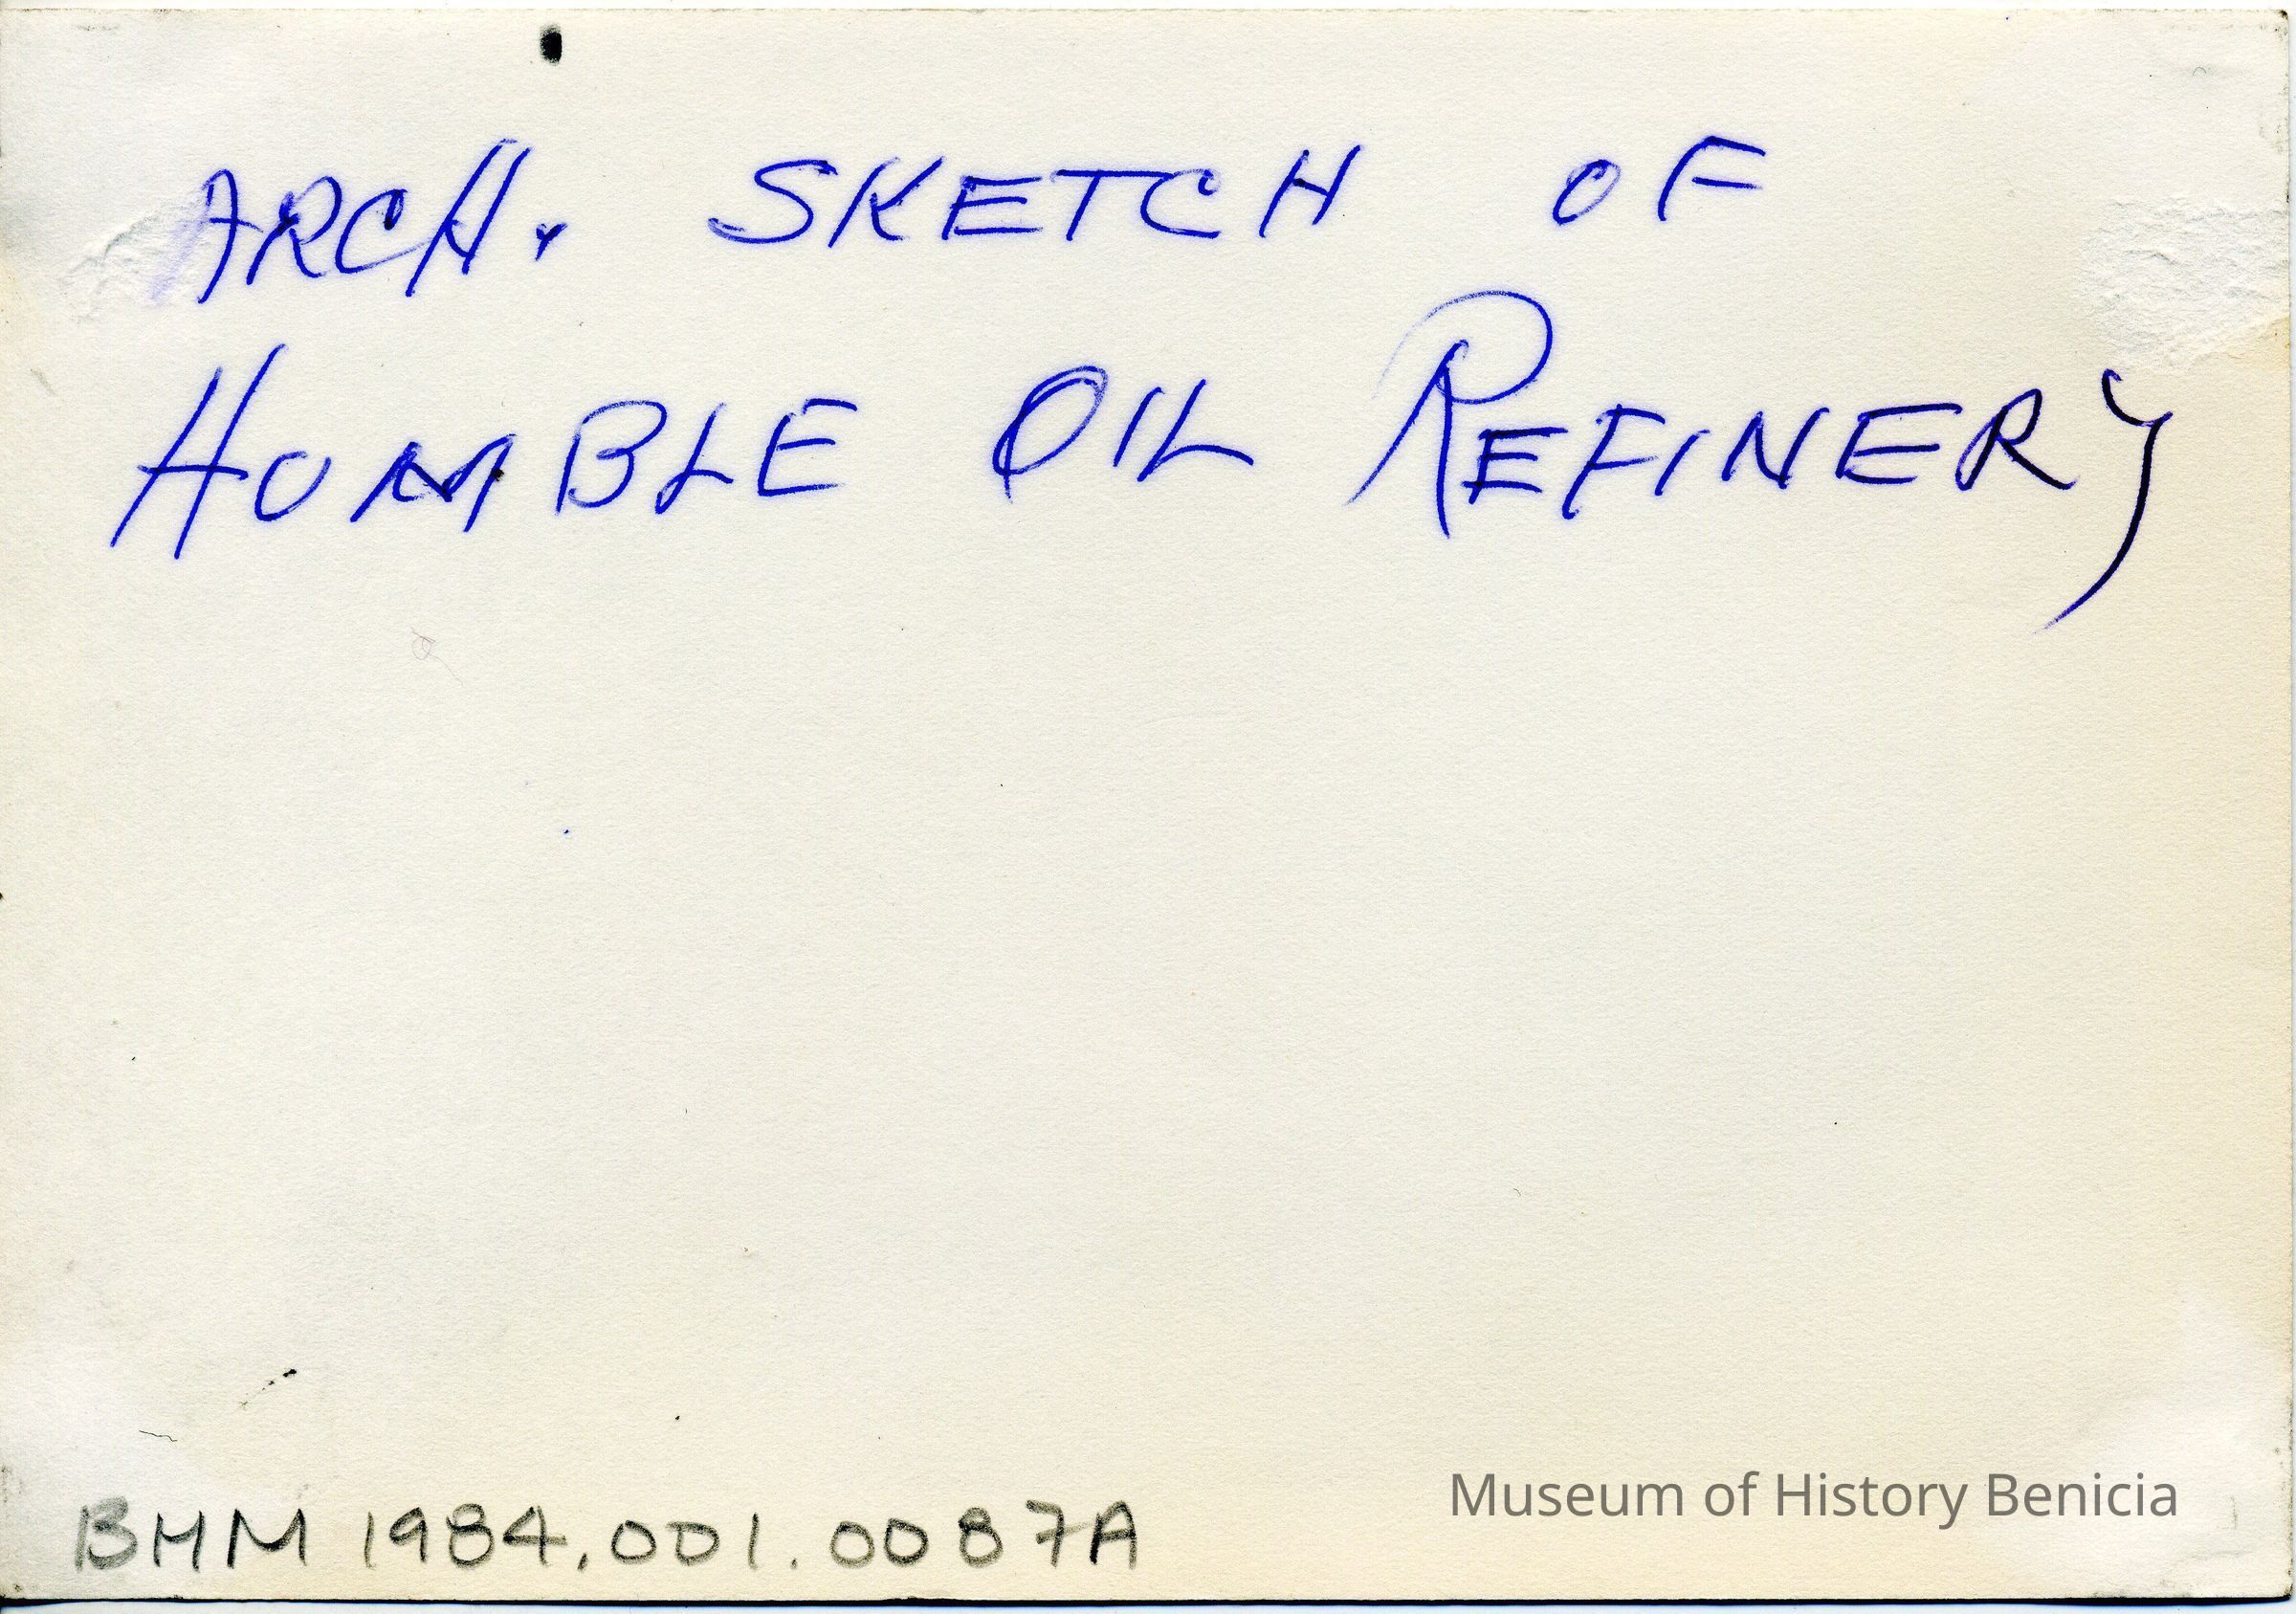 ARCH. SKETCH OF
HUMBLE OIL REFINERY
BHM 1984.001.0087A
Museum of History Benicia